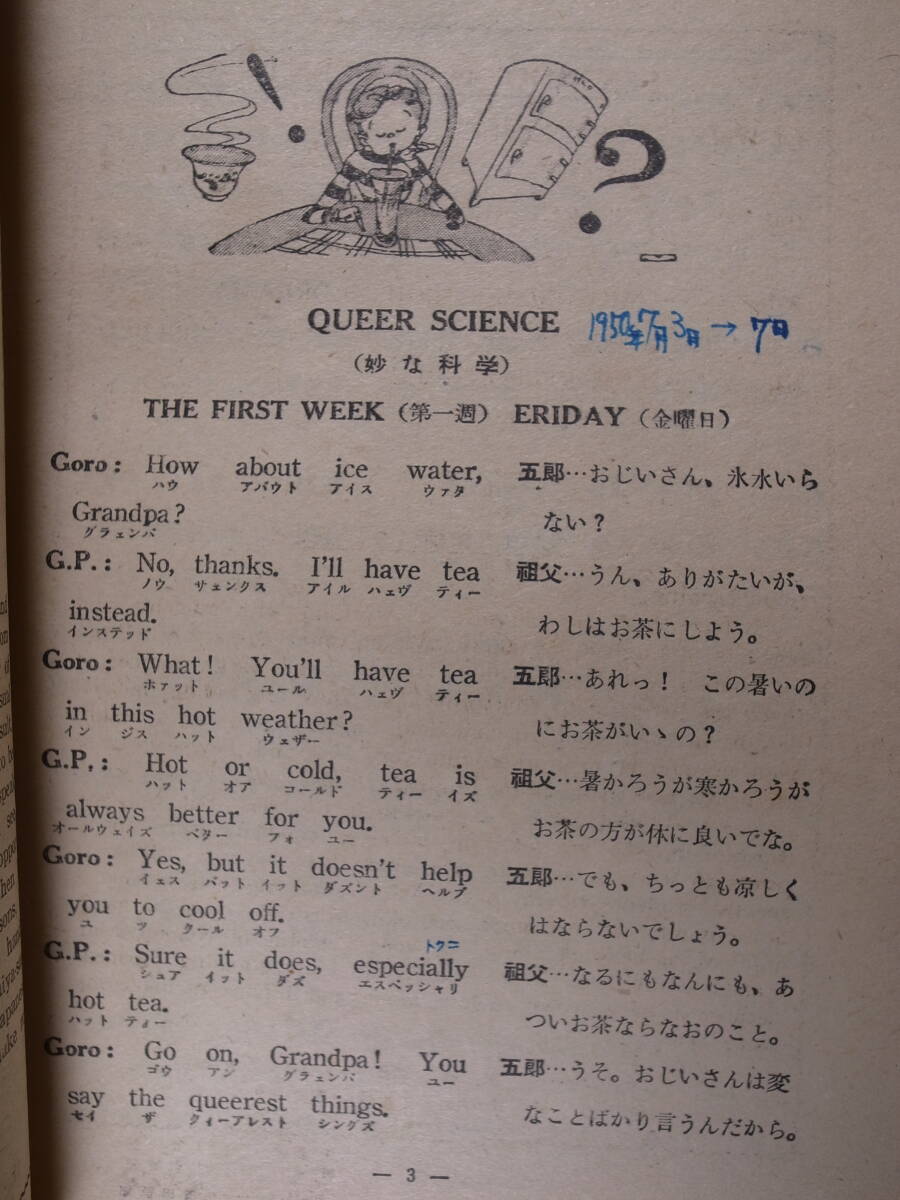 QUEER SCIENCE 1950年7月3日→7日
(妙な科学)
THE FIRST WEEK (第一週) ERIDAY (金曜日)
Goro: How about ice water,
ハウ アバウト アイス ウァタ
Grandpa?
グラェンパ
G.P.: No, thanks. I'll have tea
ノウ サェンクス アイル ハェヴ ティー
instead.
インステッド
Goro: What! You'll have tea
ホァット ユール ハェヴ ティー
in this hot weather?
イン ジス ハット ウェザー
G.P.: Hot or cold, tea is
ハット オア コールド ティー イズ
always better for you.
オールウェイズ ベター フォ ユー
Goro: Yes, but it doesn't help
イェス バット イット ダズント ヘルプ
you to cool off.
ユ ツ クール オフ
トクニ
G.P.: Sure it does, especially
シュア イット ダズ エスペッシャリ
hot tea.
ハット ティー
Goro: Go on, Grandpa! You
ゴウ アン グラェンパ ユー
say the queerest things.
セイ ザ クィーアレスト シングズ
五郎…おじいさん、氷水いら
ない?
祖父…うん、ありがたいが、
わしはお茶にしよう。
五郎…あれっ! この暑いの
にお茶がいゝの?
祖父…暑かろうが寒かろうが
お茶の方が体に良いでな。
五郎…でも、ちっとも凉しく
はならないでしょう。
祖父…なるにもなんにも、あ
ついお茶ならなおのこと。
五郎…うそ。おじいさんは変
なことばかり言うんだから。
— 3 —